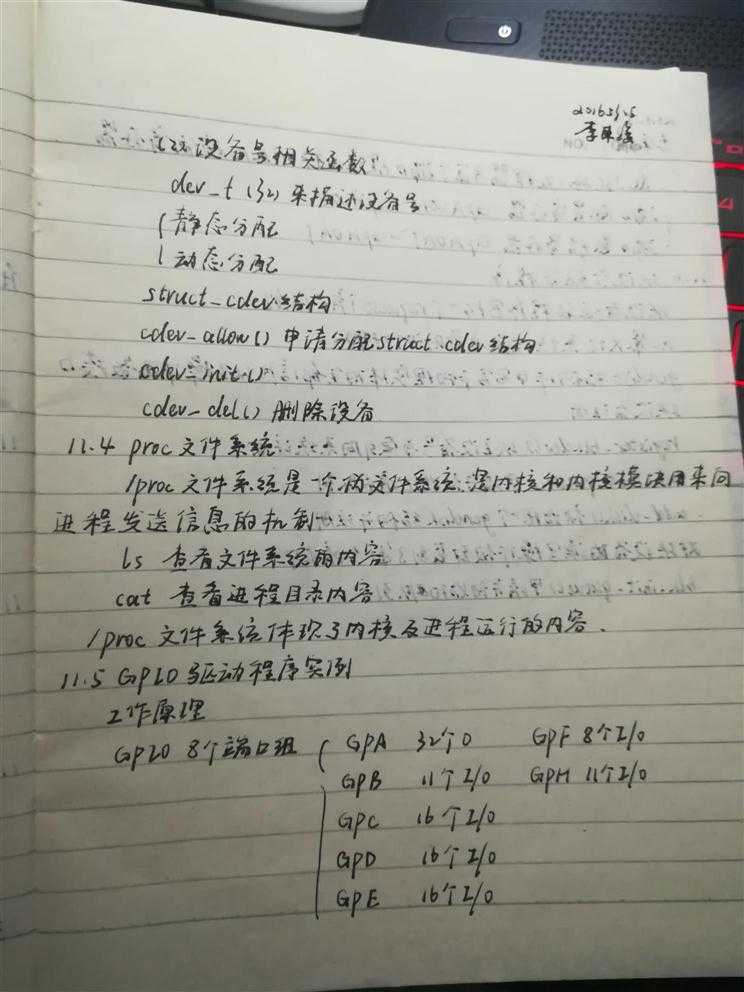 设备号相关函数
dev_t (32) 来描述设备号
静态分配
动态分配
struct_cdev结构
cdev_allow() 申请分配struct cdev结构
cdev_init()
cdev_del() 删除设备
11.4 proc 文件系统
/proc 文件系统是一个伪文件系统,是内核和内核模块用来向
进程发送信息的机制
ls 查看文件系统的内容
cat 查看进程目录内容
/proc 文件系统体现了内核及进程运行的内容.
11.5 GPIO驱动程序实例
工作原理
GPIO 8个端口组 GPA 32个O GPF 8个I/O
GPB 11个I/O GPH 11个I/O
GPC 16个I/O
GPD 16个I/O
GPE 16个I/O